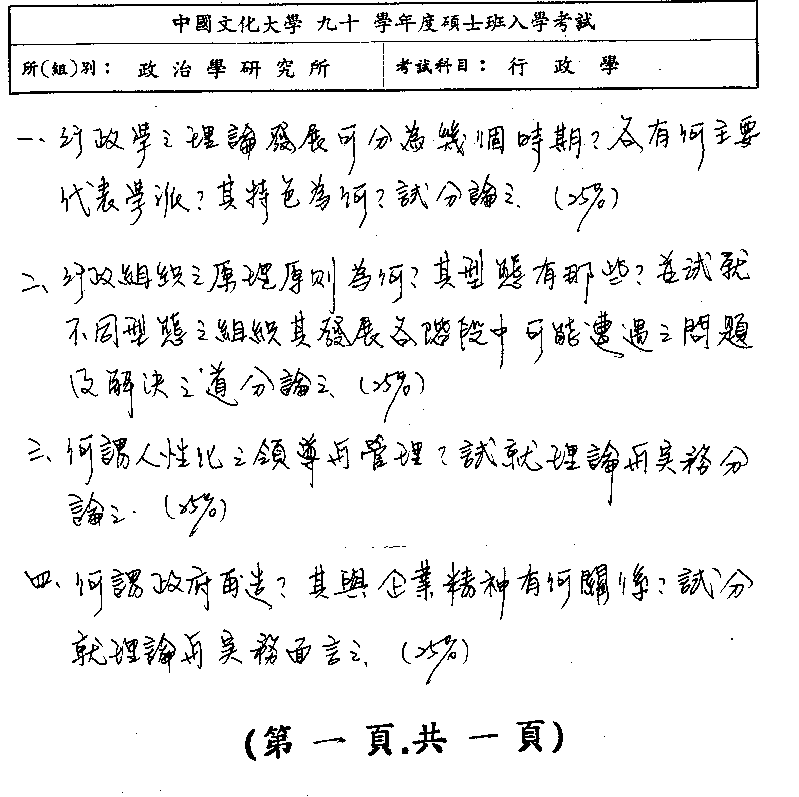 中國文化大學 九十 學年度碩士班入學考試
所(組)別: 政治學研究所 考試科目: 行 政 學
一、行政學之理論發展可分為幾個時期?各有何主要
代表學派?其特色為何?試分論之.(25%)
二、行政組織之原理原則為何?其型態有那些?並試就
不同型態之組織其發展各階段中可能遭遇之問題
及解決之道分論之.(25%)
三、何謂人性化之領導与管理?試就理論与实務分
論之.(25%)
四、何謂政府再造?其與企業精神有何關係?試分
就理論与实務面言之.(25%)
(第一頁.共一頁)